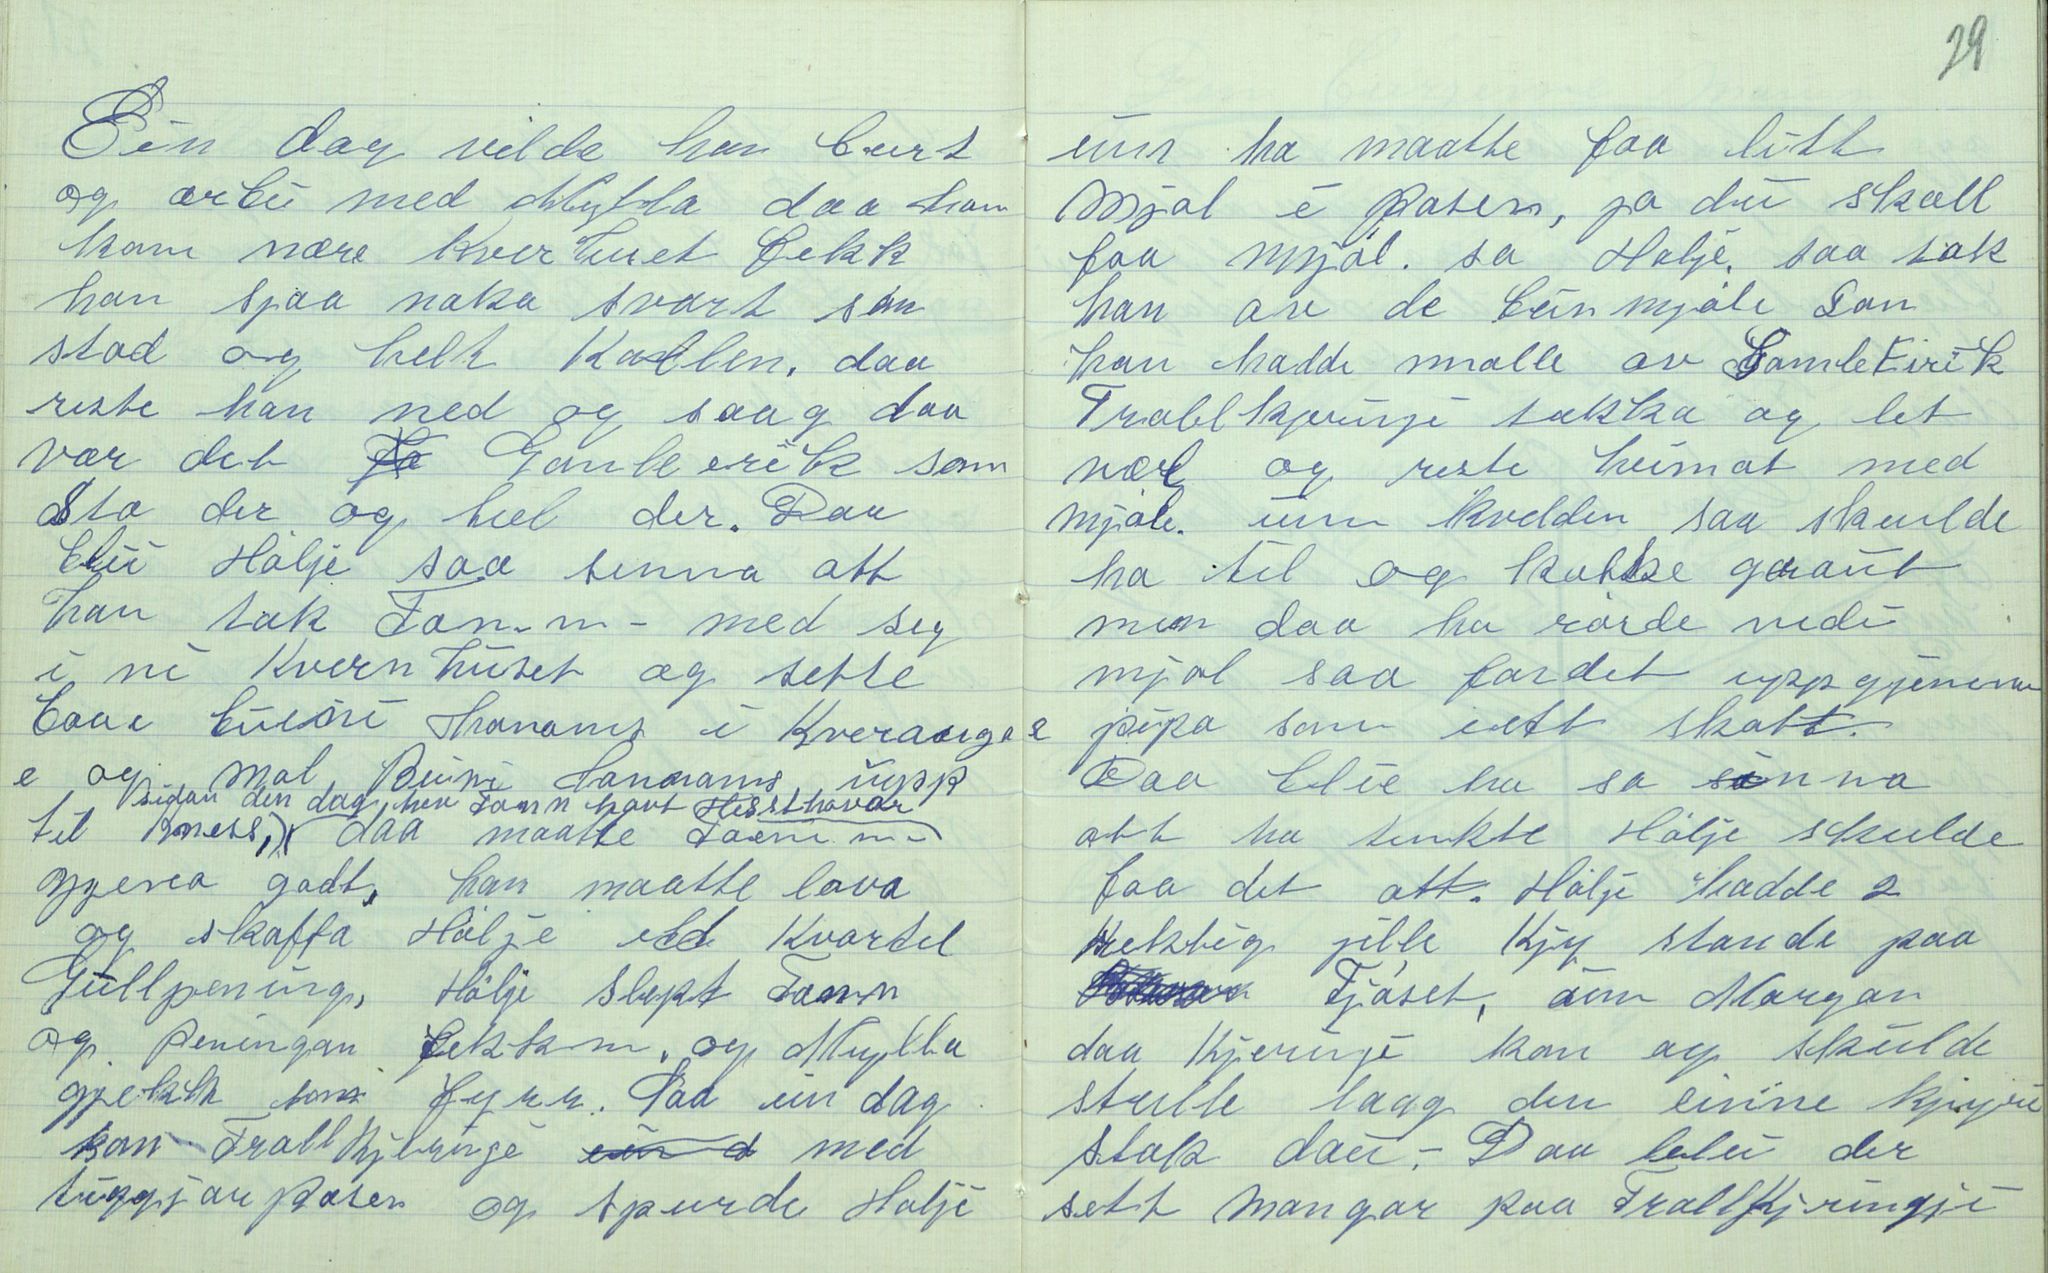 Ein dag vilde han burt
og arbei med Mylla daa han
kom nære kver huset fekk
han sjaa noka svart som
stod og helt Kallen. daa
reste han ned og saag daa
var det Gamle erik som
Sto der og heel der. Daa
blei Hölje saa sinna att
han tok Fan-m- med seg
i ni Kvern huset og sette
e og mol Beini Hanmans upp
sidan den dag, hev Fann havt Hessthovar
til kness, daa maatte Fann m-
gjeva godt, han maatte lova
og skaffa Hölje ett Kvartel
Gullpening, Hölje slept Fann
og Peningan fekk m. og Mylla
gjekk som fyrr. Saa ein dag
kom Trollkjeringe ein d med
tiggjar posen og spurde Holje

29
um ho maatte faa litt
Mjøl i Posen, ja du skall
faa Mjöl. sa Holje. saa tok
han av de beinmjöle som
han hadde malle av GamleEirik
Trollkjeringi takka og let
væl og reste heimat med
mjöle. um kvelden saa skulde
ho til og kokke graut
men daa ho rörde nedi
mjøl saa for det upp gjenom
pipa som eitt skott.
Daa blei ho so sinna
att ho tenkte Hölje skulde
faa det att. Hölje hadde 2
jille Kjy stande paa
Fjöset, um Morgon
daa Kjeringi kom og skulde
stelle laag den eine kjyri
stok dau. - Daa blei der
sett Mangar paa TrollKjringji